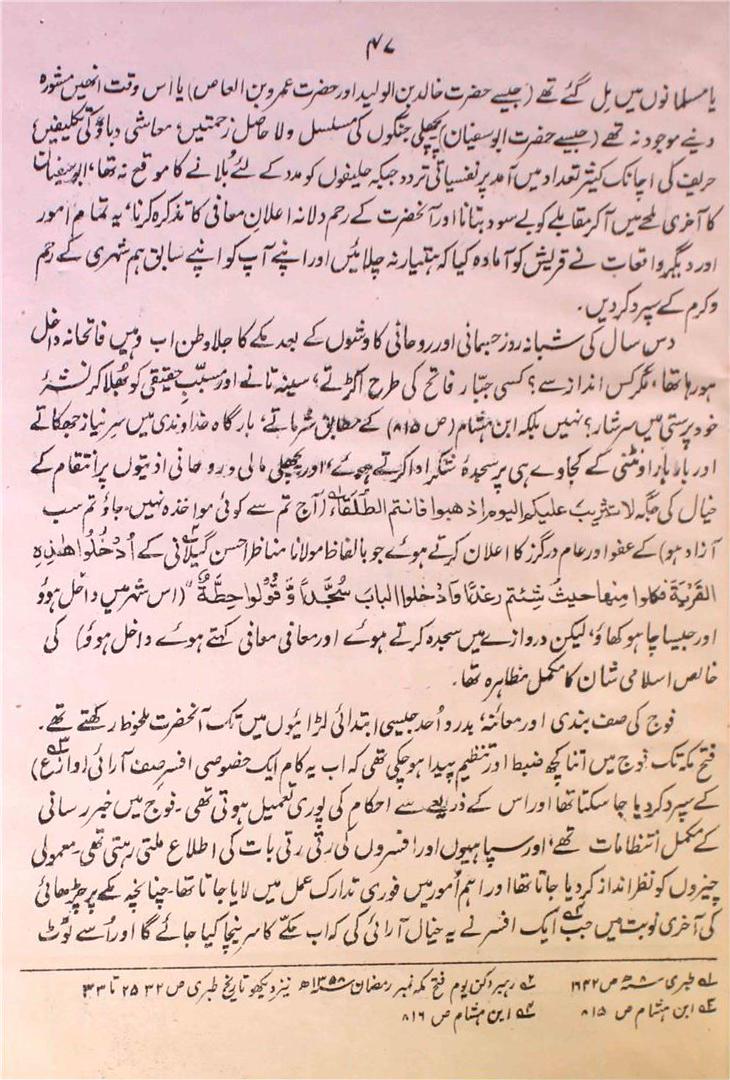 ۴۷
یا مسلمانوں میں مل گئے تھے (جیسے حضرت خالد بن الولید اور حضرت عمرو بن العاص) یا اس وقت انھیں مشورہ
دینے موجود نہ تھے (جیسے حضرت ابوسفیان) پچھلی جنگوں کی مسلسل و لاحاصل زحمتیں، معاشی دباؤ کی تکلیفیں،
حریف کی اچانک کثیر تعداد میں آمد پر نفسیاتی تردد جبکہ حلیفوں کو مدد کے لئے بُلانے کا موقع نہ تھا، ابوسفیان
کا آخری لمحے میں آکر مقابلے کو بے سود بتانا اور آنحضرت کے رحم دلانہ اعلان معافی کا تذکرہ کرنا، یہ تمام اُمور
اور دیگر واقعات نے قریش کو آمادہ کیا کہ ہتیار نہ چلائیں اور اپنے آپ کو اپنے سابق ہم شہری کے رحم
و کرم کے سپرد کردیں۔
دس سال کی شبانہ روز جسمانی اور روحانی کاوشوں کے بعد مکے کا جلاوطن اب وہیں فاتحانہ داخل
ہو رہا تھا، مگر کس انداز سے؟ کسی جبّار فاتح کی طرح اکڑتے، سینہ تانے اور مسبّبِ حقیقی کو بھلا کر نشۂ
خود پرستی میں سرشار؟ نہیں بلکہ ابن ہشام (ص ۸۱۵) کے مطابق شرماتے، بارگاہ خداوندی میں سرِ نیاز جھکاتے
اور بار بار اونٹنی کے کجاوے ہی پر سجدۂ شکر ادا کرتے ہوئے، اور پچھلی مالی و روحانی اذیتوں پر انتقام کے
خیال کی جگہ لا تثریب علیکم الیوم اذھبوا فانتم الطلقاء (آج تم سے کوئی مواخذہ نہیں۔ جاؤ تم سب
آزاد ہو) کے عفو اور عام درگزر کا اعلان کرتے ہوئے جو بالفاظ مولانا مناظر احسن گیلانی کے اُدْخُلُوا ھٰذِہِ
القَریَۃَ فکلوا مِنھا حیثُ شِئتم رغدًا وادخلوا البابَ سُجَّدًا وَّ قُولُوا حِطَّۃٌ" (اس شہر میں داخل ہوؤ
اور جیسا چاہو کھاؤ، لیکن دروازے میں سجدہ کرتے ہوئے اور معافی معافی کہتے ہوئے داخل ہوؤ) کی
خالص اسلامی شان کا مکمل مظاہرہ تھا۔
فوج کی صف بندی اور معائنہ، بدر و اُحد جیسی ابتدائی لڑائیوں میں تک آنحضرت ملحوظ رکھتے تھے۔
فتح مکہ تک فوج میں اتنا کچھ ضبط اور تنظیم پیدا ہو چکی تھی کہ اب یہ کام ایک خصوصی افسر صف آرائی (وازع)۳؎
کے سپرد کر دیا جا سکتا تھا اور اس کے ذریعے سے احکام کی پوری تعمیل ہوتی تھی۔ فوج میں خبر رسانی
کے مکمل انتظامات تھے، اور سپاہیوں اور افسروں کی رتی رتی بات کی اطلاع ملتی رہتی تھی۔ معمولی
چیزوں کو نظر انداز کر دیا جاتا تھا اور اہم اُمور میں فوری تدارک عمل میں لایا جاتا تھا۔ چنانچہ مکے پر چڑھائی
کی آخری نوبت میں جب۴؎ ایک افسر نے یہ خیال آرائی کی کہ اب مکے کا سر نیچا کیا جائے گا اور اُسے لوٹ
۱؎ طبری ۸ھ ص ۱۶۴۲ ۲؎ رہبر دکن یوم فتح مکہ نمبر رمضان ۱۳۵۸ھ نیز دیکھو تاریخ طبری ص ۲۵۳۲ تا ۳۳
۳؎ ابن ہشام ص ۸۱۵ ۴؎ ابن ہشام ص ۸۱۶